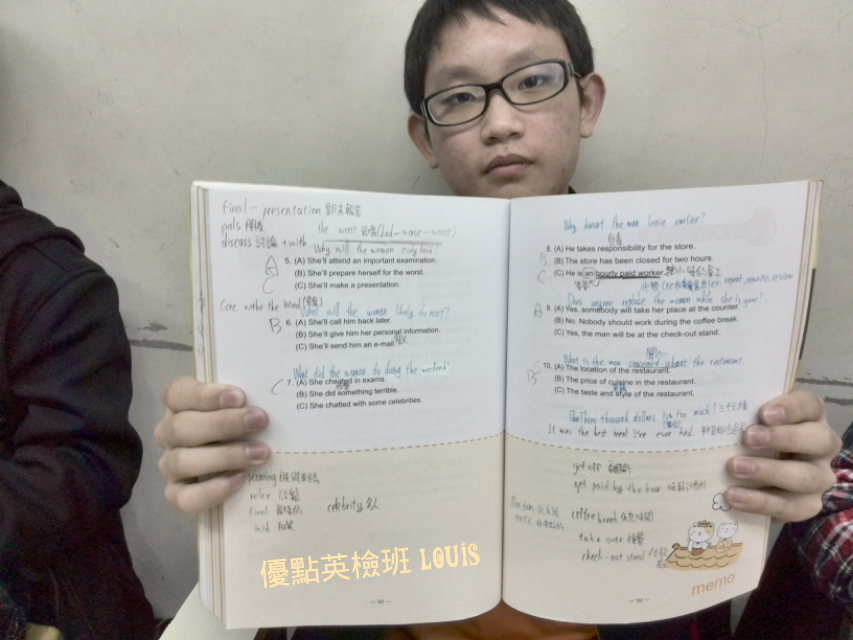 final-presentation 期末報告
pals 朋友
the worst 最糟(bad-worse-worst)
discuss 討論 +with
Why will the woman study hard?
A
5. (A) She'll attend an important examination.
(B) She'll prepare herself for the worst.
(C) She'll make a presentation.
What will the woman likely do next?
B
6. (A) She'll call him back later.
(B) She'll give him her personal information.
(C) She'll send him an e-mail.
What did the woman do during the weekend?
C
7. (A) She cheated in exams.
(B) She did something terrible.
(C) She chatted with some celebrities.
relax
final
celebrity 名人
優點英檢班 LOUIS
Why doesn't the man leave earlier?
8. (A) He takes responsibility for the store.
(B) The store has been closed for two hours.
C
(C) He is an hourly paid worker.
repeat, rewrite, review
Does anyone replace the woman while she is gone?
A
9. (A) Yes, somebody will take her place at the counter.
(B) No. Nobody should work during the coffee break.
(C) Yes, the man will be at the check-out stand.
What is the man concerned about the restaurant?
10. (A) The location of the restaurant.
B
(B) The price of cuisine in the restaurant.
(C) The taste and style of the restaurant.
Three thousand dollars is too much!
It was the best meal I've ever had.
get off
get paid by the hour
coffee break 休息時間
take over 接替
check-out stand
memo